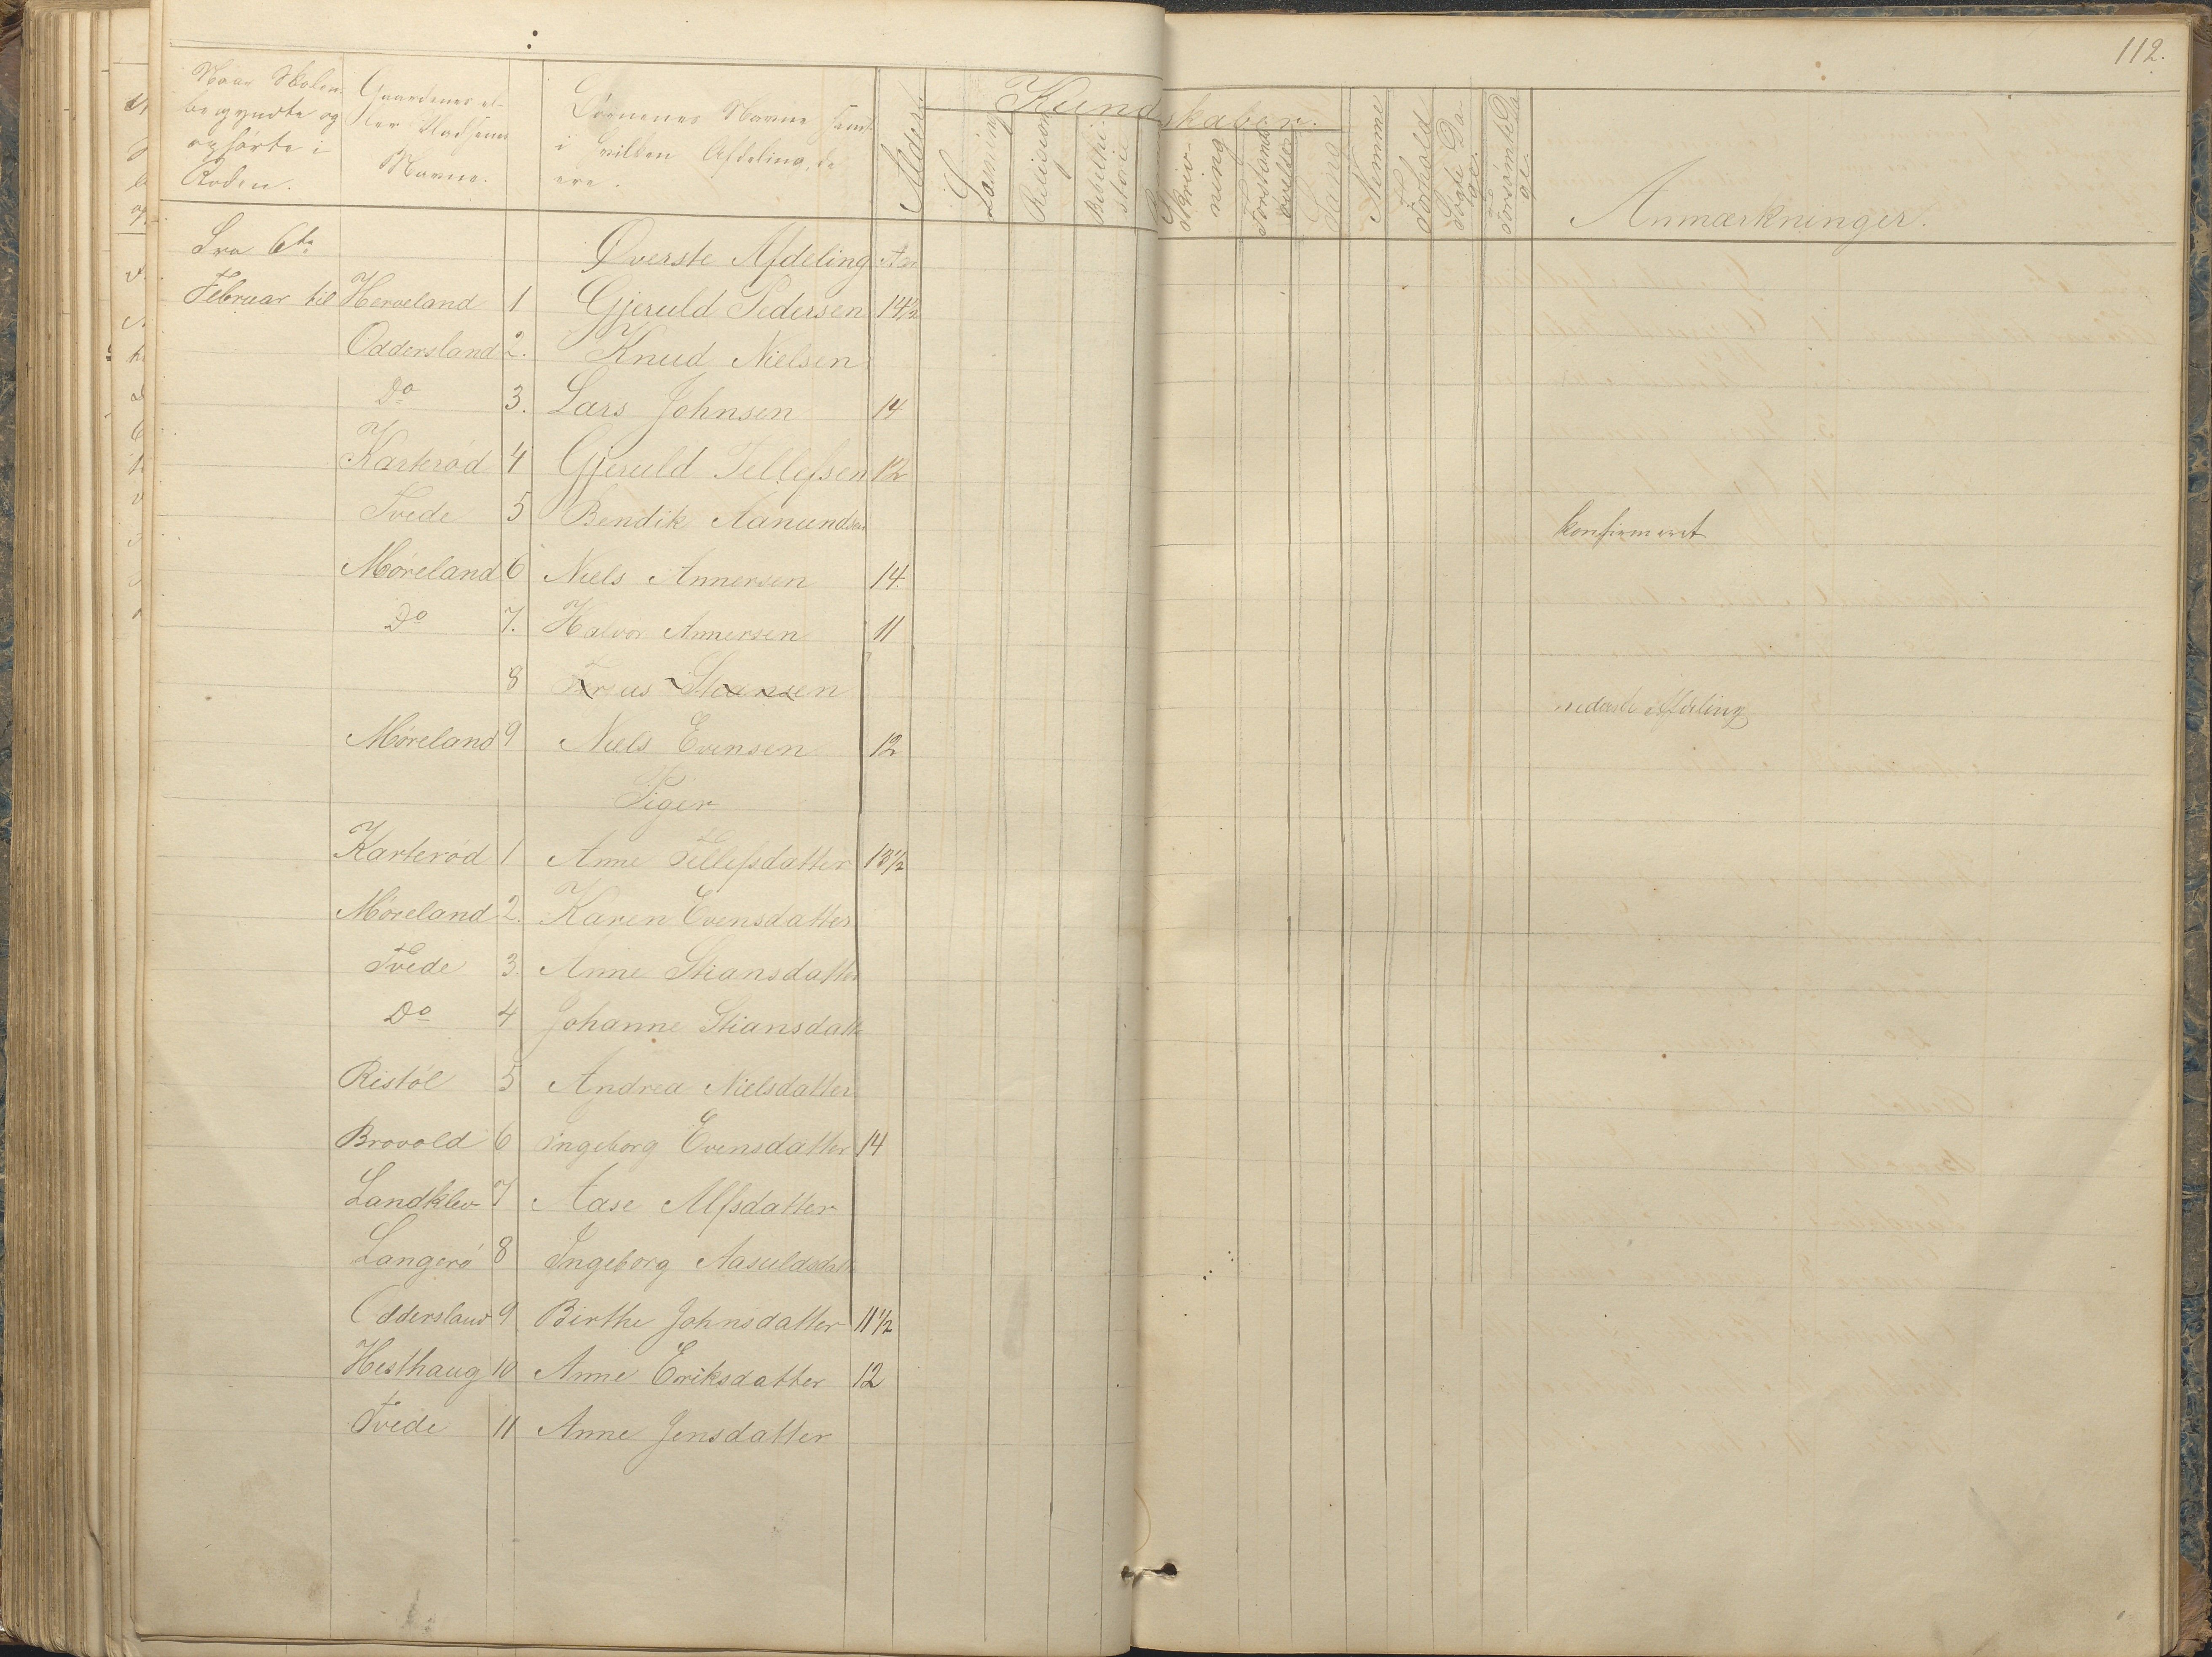 112.
Naar Skolen
begyndte og
ophørte i
Roden.
Gaardenes el-
ler Pladsenes
Navne.
Børnenes Navne samt
i hvilken Afdeling de
ere.
Alder.
Kundskaber.
Læsning
Religion
Bibelhi-
storie
Skriv-
ning
Forstands
øvelser
Sang
Nemme
Forhold
Søgte Da-
ge.
Forsømte Da
ge.
Anmærkninger.
Fra 6te Øverste Afdeling Aar
Februar til Herveland 1 Gjeruld Pedersen 14½
Oddersland 2. Knud Nielsen
Do 3. Lars Johnsen 14
Karterød 4 Gjeruld Tellefsen 12
Tvede 5 Bendik Aanundsen konfirmeret
Møreland 6 Niels Annersen 14
Do 7. Halvor Annersen 11
8 Stiansen nederste Afdeling
Møreland 9 Niels Evensen 12
Piger
Karterød 1 Anne Tellefsdatter 13½
Møreland 2. Karen Evensdatter
Tvede 3. Anne Stiansdatter
Do 4 Johanne Stiansdatt
Ristøl 5 Andrea Nielsdatter
Brovold 6 Ingeborg Evensdatter 14
Landklev 7 Aase Alfsdatter
Langerø 8 Ingeborg Aasuldsdatt
Oddersland 9 Birthe Johnsdatter 11½
Hesthaug 10 Anne Eriksdatter 12
Tvede 11 Anne Jensdatter